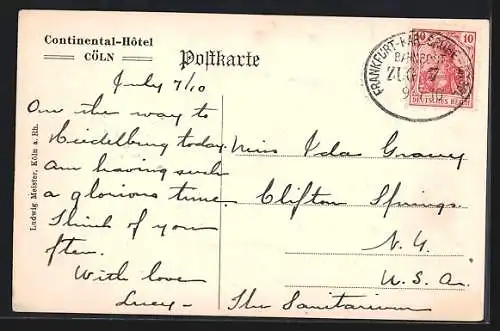 Continental-Hôtel
CÖLN
Postkarte
July 7/10
On the way to
Heidelburg today.
Am having such
a glorious time.
Think of you
often.
With love
Lucy -
Miss Ida Gracey
Clifton Springs
N.Y.
U.S.A.
The Sanitarium
Ludwig Meister, Köln a. Rh.
10 10
DEUTSCHES REICH
FRANKFURT-KARLSRUHE
BAHNPOST
ZUG 7